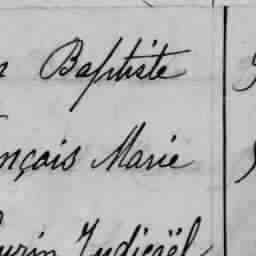 n Baptiste
nçois Marie
urin Judicaël